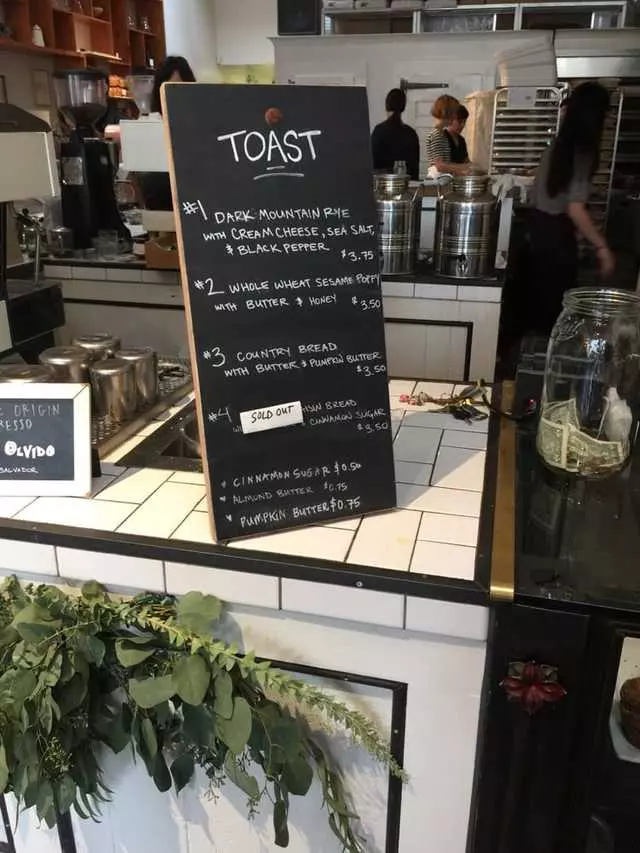 TOAST
#1 DARK MOUNTAIN RYE
WITH CREAM CHEESE, SEA SALT,
& BLACK PEPPER $3.75
#2 WHOLE WHEAT SESAME POPPY
WITH BUTTER & HONEY $3.50
#3 COUNTRY BREAD
WITH BUTTER & PUMPKIN BUTTER
$3.50
#4 SOLD OUT BREAD
CINNAMON SUGAR
$3.50
CINNAMON SUGAR $0.50
ALMOND BUTTER $0.75
PUMPKIN BUTTER $0.75
ORIGIN
OLVIDO
SALVADOR